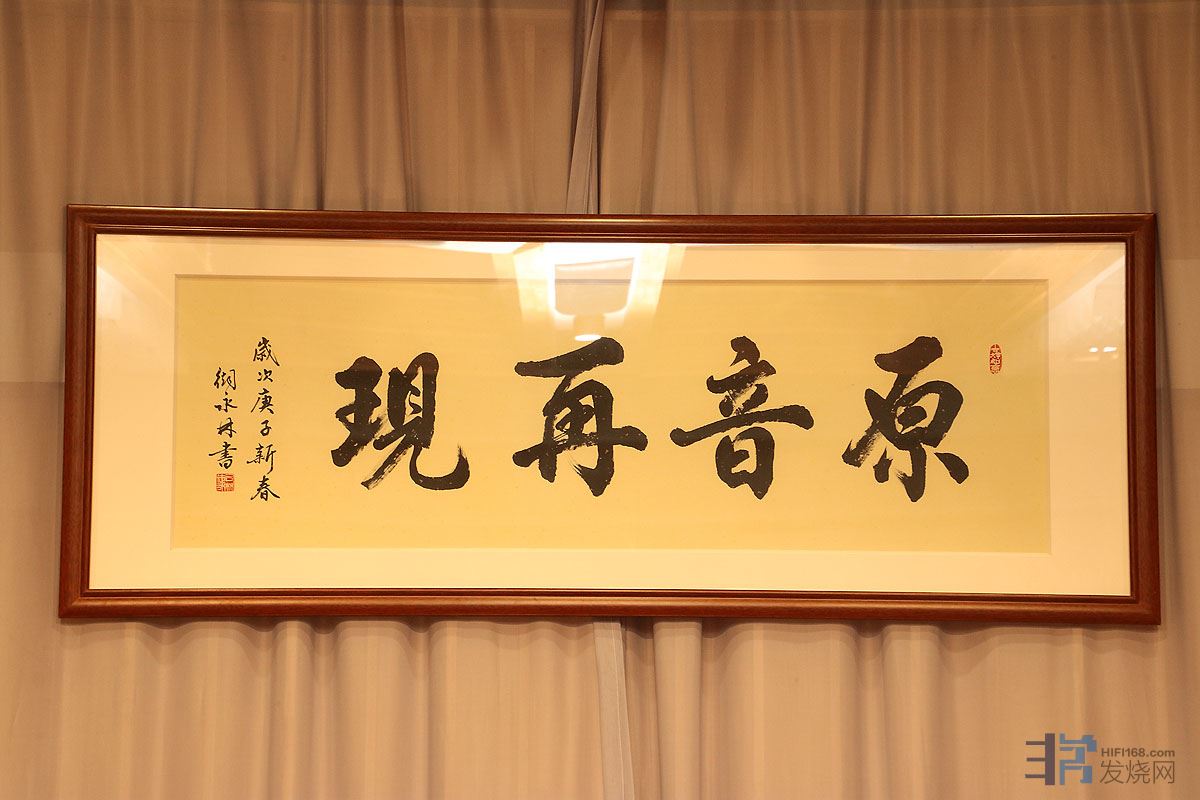 原音再現
歲次庚子新春
永林書
HIFI168.com
发烧网